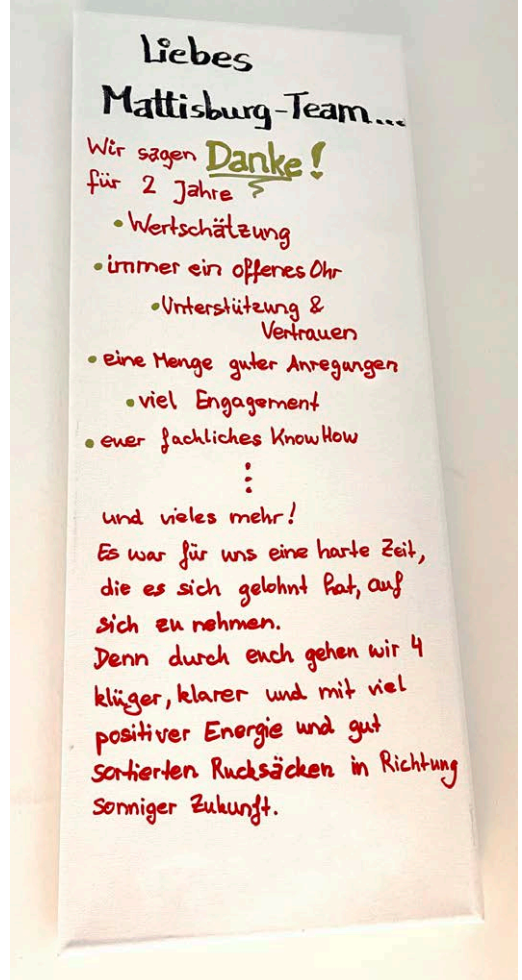 Liebes
Mattisburg-Team...
Wir sagen Danke!
für 2 Jahre
• Wertschätzung
• immer ein offenes Ohr
• Unterstützung &
Vertrauen
• eine Menge guter Anregungen
• viel Engagement
• euer fachliches KnowHow
⋮
und vieles mehr!
Es war für uns eine harte Zeit,
die es sich gelohnt hat, auf
sich zu nehmen.
Denn durch euch gehen wir 4
klüger, klarer und mit viel
positiver Energie und gut
sortierten Rucksäcken in Richtung
sonniger Zukunft.